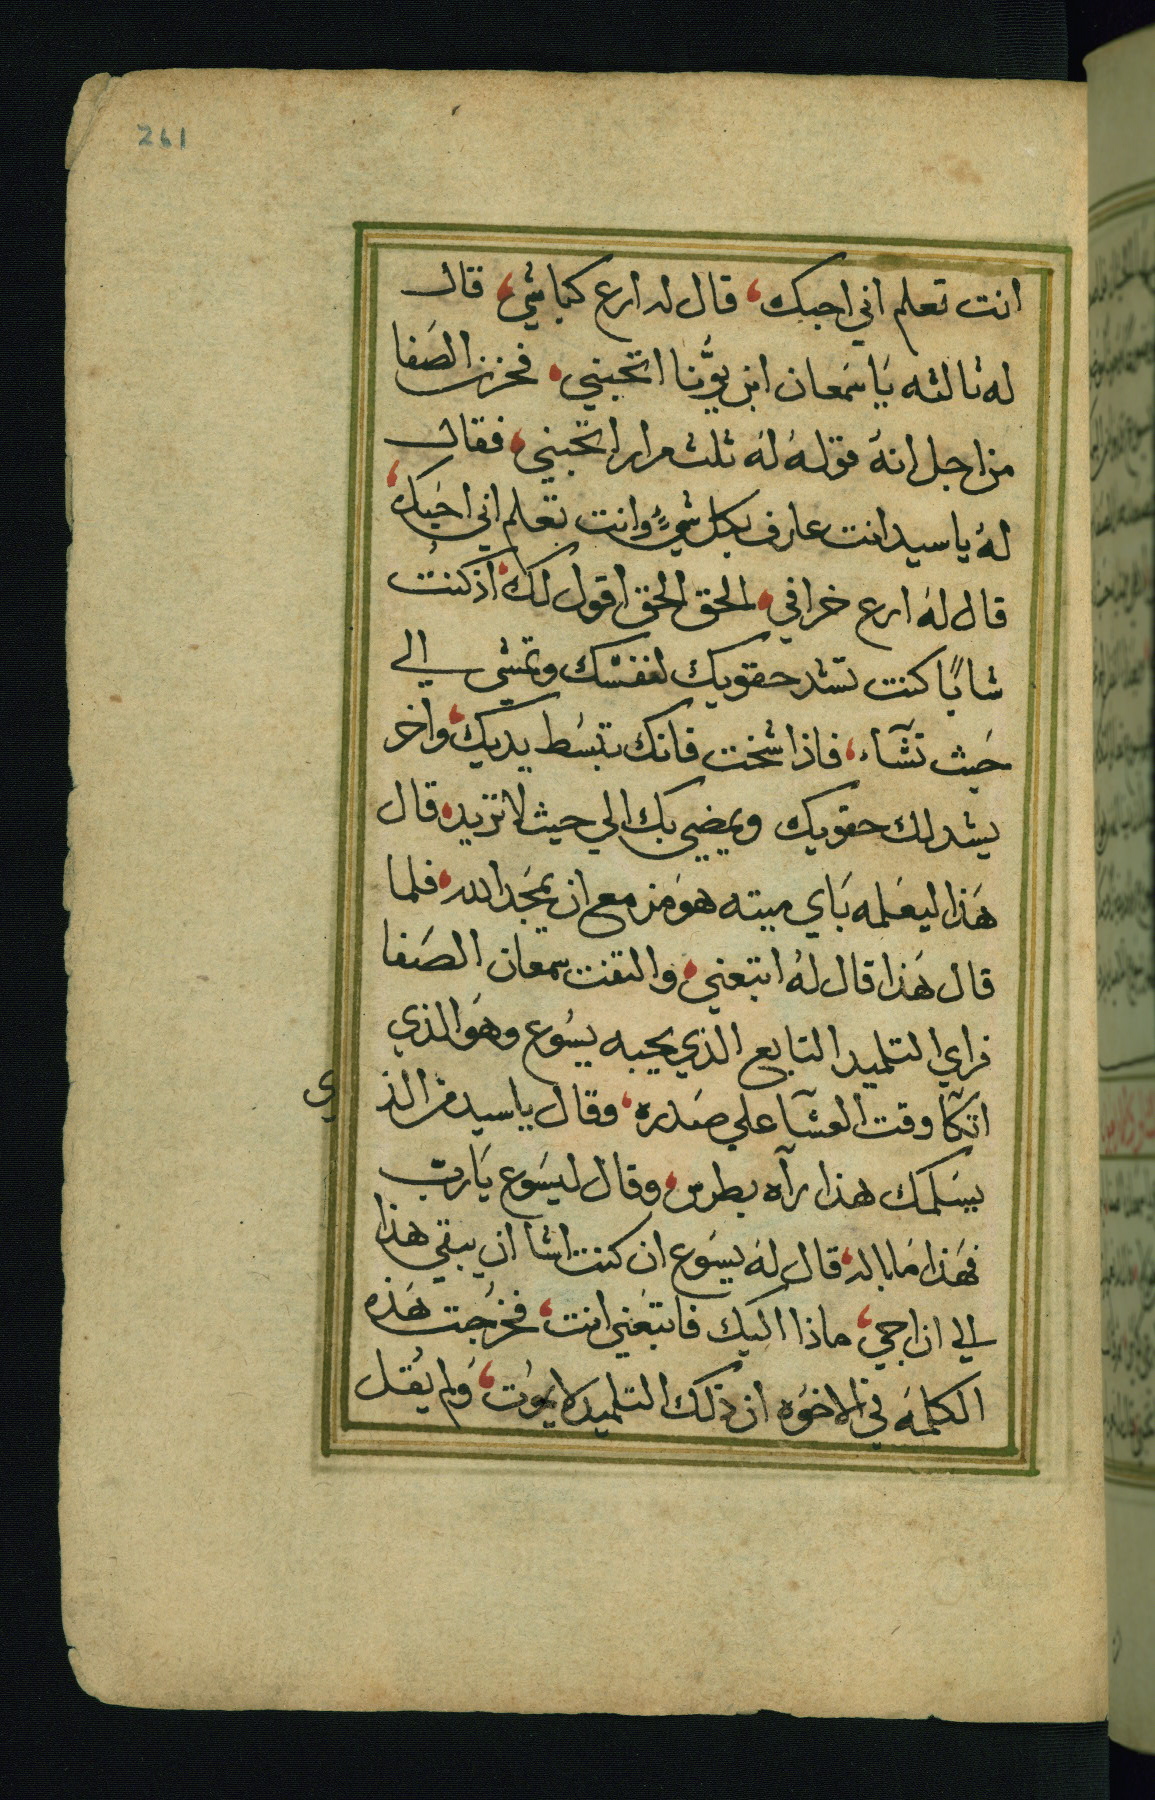 261
انت تعلم اني احبك، قال له ارع كباشي، قال
له ثالثه يَا سَمعان ابن يوُّنا اتحبني، فحزن الصَفا
من اجل انهُ قولهُ لهُ ثلث مرار اتحبني، فقال
لهُ يا سيد انت عارف بكل شيءٍ وانت تعلم اني احبك،
قال لهُ ارع خرافي، الحق الحق اقول لك، اذ كنتُ
شابًا كنت تشد حقويك لنفسك وتمشي الي
حَيث تشَآء، فاذا شخت فانك تبسُط يديك، واخر
يشد لك حقويك ويمضي بك الي حيث لا تريد، قال
هَذا ليعَلمه بَاي ميته هوَ مزمع ان يمَجد الله، فلما
قال هَذا قال لهُ اتبعني، والتفت سمعان الصَفا
فراي التلميد التابع الذي يحبه يسُوع وهوَ الذي
اتكآ وقت العشآ علي صَدره، وقال يا سيد من الذ
ي
يسَلمك هذا رآه بطرس، وقال ليسَوع يَارب
فهَذا مَا باله، قال لهَ يسَوع ان كنت اشا ان يبقي هذا
الي ان اجي، ماذا اليك فاتبعَني انت، فخرجَت هَذه
الكلمَه في الاخوَه ان ذلك التلميد لا يموُت، وَلم يُقل